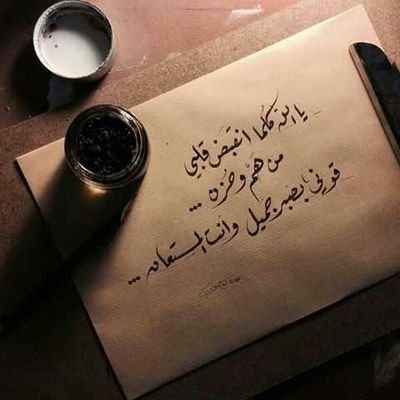 يا الله كلما انقبَضَ قلبي
من هَمٍّ وحزن ...
قوِّني بصبر جميل وأنت المستعان ...